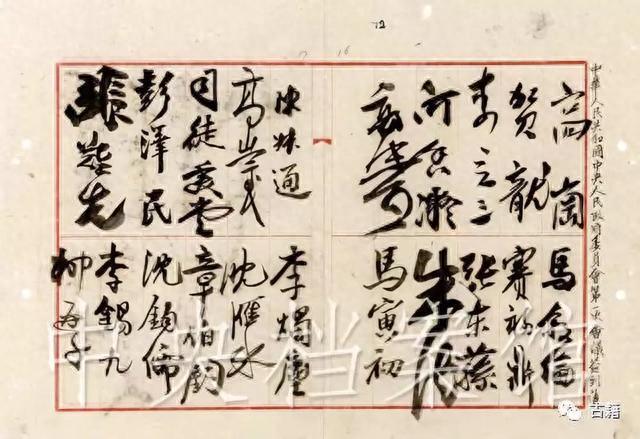 72
16
中華人民共和國中央人民政府委員會第一次會議簽到
高崗
賀龍
李立三
何香凝
陳叔通
高崇民
司徒美堂
彭澤民
張難先
馬叙倫
賽福鼎
張東蓀
朱德
馬寅初
李燭塵
沈雁冰
章伯鈞
沈鈞儒
李錫九
柳亞子
中央档案馆
古籍